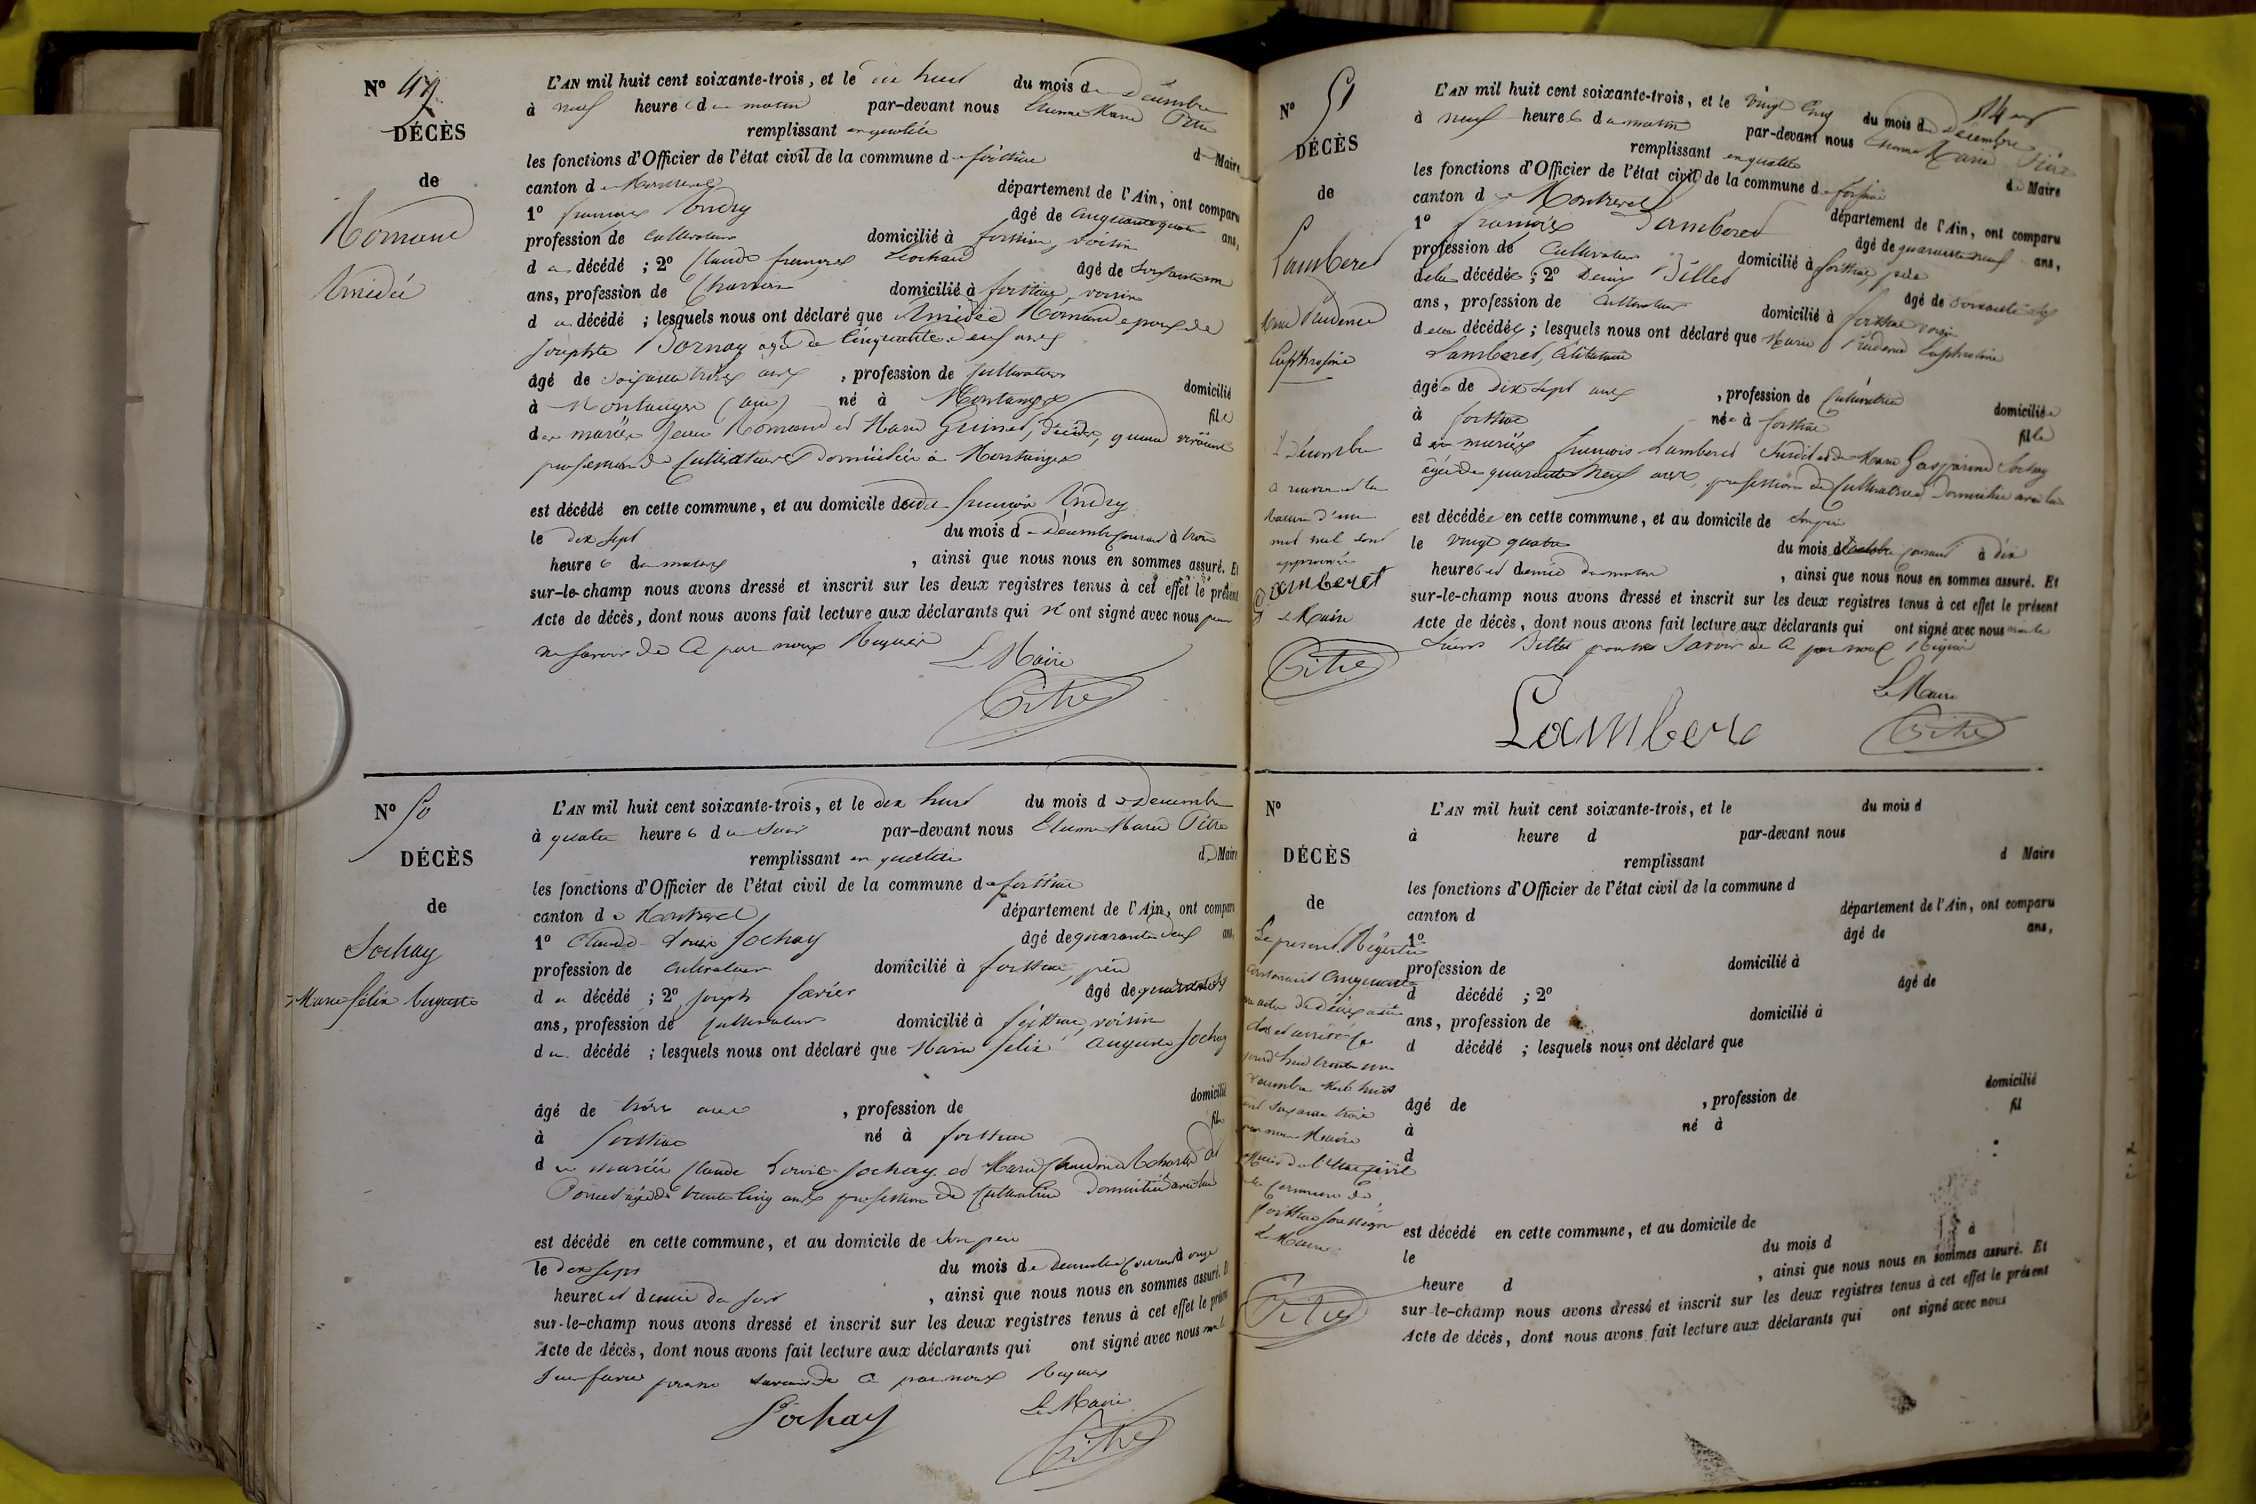 N° 49
DÉCÈS
de
Romand
Amédée
L'AN mil huit cent soixante-trois, et le dix huit du mois de Décembre
à neuf heures du matin par-devant nous Etienne Marie Pitre
remplissant en qualité de Maire
les fonctions d'Officier de l'état civil de la commune de foissiat
canton de Montrevel département de l'Ain, ont comparu
1° françois Andry âgé de cinquante quatre ans,
profession de cultivateur domicilié à foissiat, voisin
du décédé ; 2° Claude françois Rochand âgé de soixante un
ans, profession de Charron domicilié à foissiat, voisin
du décédé ; lesquels nous ont déclaré que Amédée Romand époux de
Josephte Bornay agée de Cinquante deux ans
âgé de soixante trois ans , profession de Cultivateur domicilié
à Montanges (ain) né à Montanges fils
des mariés Jean Romand et Marie décédés, quand vivaient
profession de Cultivateurs Domiciliés à Montanges
est décédé en cette commune, et au domicile dudit françois Andry
le dix sept du mois de Décembre courant à trois
heures du matin , ainsi que nous nous en sommes assuré. Et
sur-le-champ nous avons dressé et inscrit sur les deux registres tenus à cet effet le présent
Acte de décès, dont nous avons fait lecture aux déclarants qui n'ont signé avec nous pour
ne savoir de ce par nous Requis
Le Maire
Pitre
N° 50
DÉCÈS
de
Sochay
Marie felix Auguste
L'AN mil huit cent soixante-trois, et le dix huit du mois de Décembre
à quatre heures du soir par-devant nous Etienne Marie Pitre
remplissant en qualité de Maire
les fonctions d'Officier de l'état civil de la commune de foissiat
canton de Montrevel département de l'Ain, ont comparu
1° Claude Louis Sochay âgé de quarante deux ans,
profession de cultivateur domicilié à foissiat, père
du décédé ; 2° Joseph favier âgé de quarante
ans, profession de Cultivateur domicilié à foissiat, voisin
du décédé ; lesquels nous ont déclaré que Marie felix Auguste Sochay
âgé de trois ans , profession de domicilié
à foissiat né à foissiat fils
des mariés Claude Louis Sochay et Marie Claudine
Poncet agée de trente cinq ans profession de Cultivatrice Domiciliée avec lui
est décédé en cette commune, et au domicile de son père
le dix sept du mois de Décembre courant à onze
heures et demie du soir , ainsi que nous nous en sommes assuré. Et
sur-le-champ nous avons dressé et inscrit sur les deux registres tenus à cet effet le présent
Acte de décès, dont nous avons fait lecture aux déclarants qui ont signé avec nous non le
Sieur favier pour ne savoir de ce par nous Requis
Sochay
Le Maire
Pitre
54
N° 51
DÉCÈS
de
Lamberet
Marie Prudence
Euphrosine
Lamberet
Le Maire
Pitre
L'AN mil huit cent soixante-trois, et le vingt Cinq du mois de Décembre
à neuf heures du matin par-devant nous Etienne Marie Pitre
remplissant en qualité de Maire
les fonctions d'Officier de l'état civil de la commune de foissiat
canton de Montrevel département de l'Ain, ont comparu
1° françois Lamberet âgé de quarante neuf ans,
profession de Cultivateur domicilié à foissiat, père
de la décédée ; 2° Denis Billet âgé de soixante
ans, profession de Cultivateur domicilié à foissiat voisin
de la décédée ; lesquels nous ont déclaré que Marie Prudence Euphrosine
Lamberet, Célibataire
âgée de Dix sept ans , profession de Cultivatrice domiciliée
à foissiat née à foissiat fille
des mariés françois Lamberet susdit et de Marie Gasparine Sochay
agée de quarante Neuf ans, profession de Cultivatrice Domiciliée avec lui
est décédée en cette commune, et au domicile de son père
le vingt quatre du mois d'octobre courant à dix
heures et demie du matin , ainsi que nous nous en sommes assuré. Et
sur-le-champ nous avons dressé et inscrit sur les deux registres tenus à cet effet le présent
Acte de décès, dont nous avons fait lecture aux déclarants qui ont signé avec nous non le
Sieur Billet pour ne savoir de ce par nous Requis
Le Maire
Lamberet
Pitre
N°
DÉCÈS
de
Le présent Régistre
contenant Cinquante
un actes de décès a été
clos et arrêté ce
jourd'hui trente un
Décembre mil huit
cent soixante trois
par nous Maire
officier de l'état civil
de la commune de
foissiat soussigné
Le Maire
Pitre
L'AN mil huit cent soixante-trois, et le du mois d
à heure d par-devant nous
remplissant d Maire
les fonctions d'Officier de l'état civil de la commune d
canton d département de l'Ain, ont comparu
1° âgé de ans,
profession de domicilié à
d décédé ; 2° âgé de
ans, profession de domicilié à
d décédé ; lesquels nous ont déclaré que
âgé de , profession de domicilié
à né à fil
d
est décédé en cette commune, et au domicile de
le du mois d à
heure d , ainsi que nous nous en sommes assuré. Et
sur-le-champ nous avons dressé et inscrit sur les deux registres tenus à cet effet le présent
Acte de décès, dont nous avons fait lecture aux déclarants qui ont signé avec nous